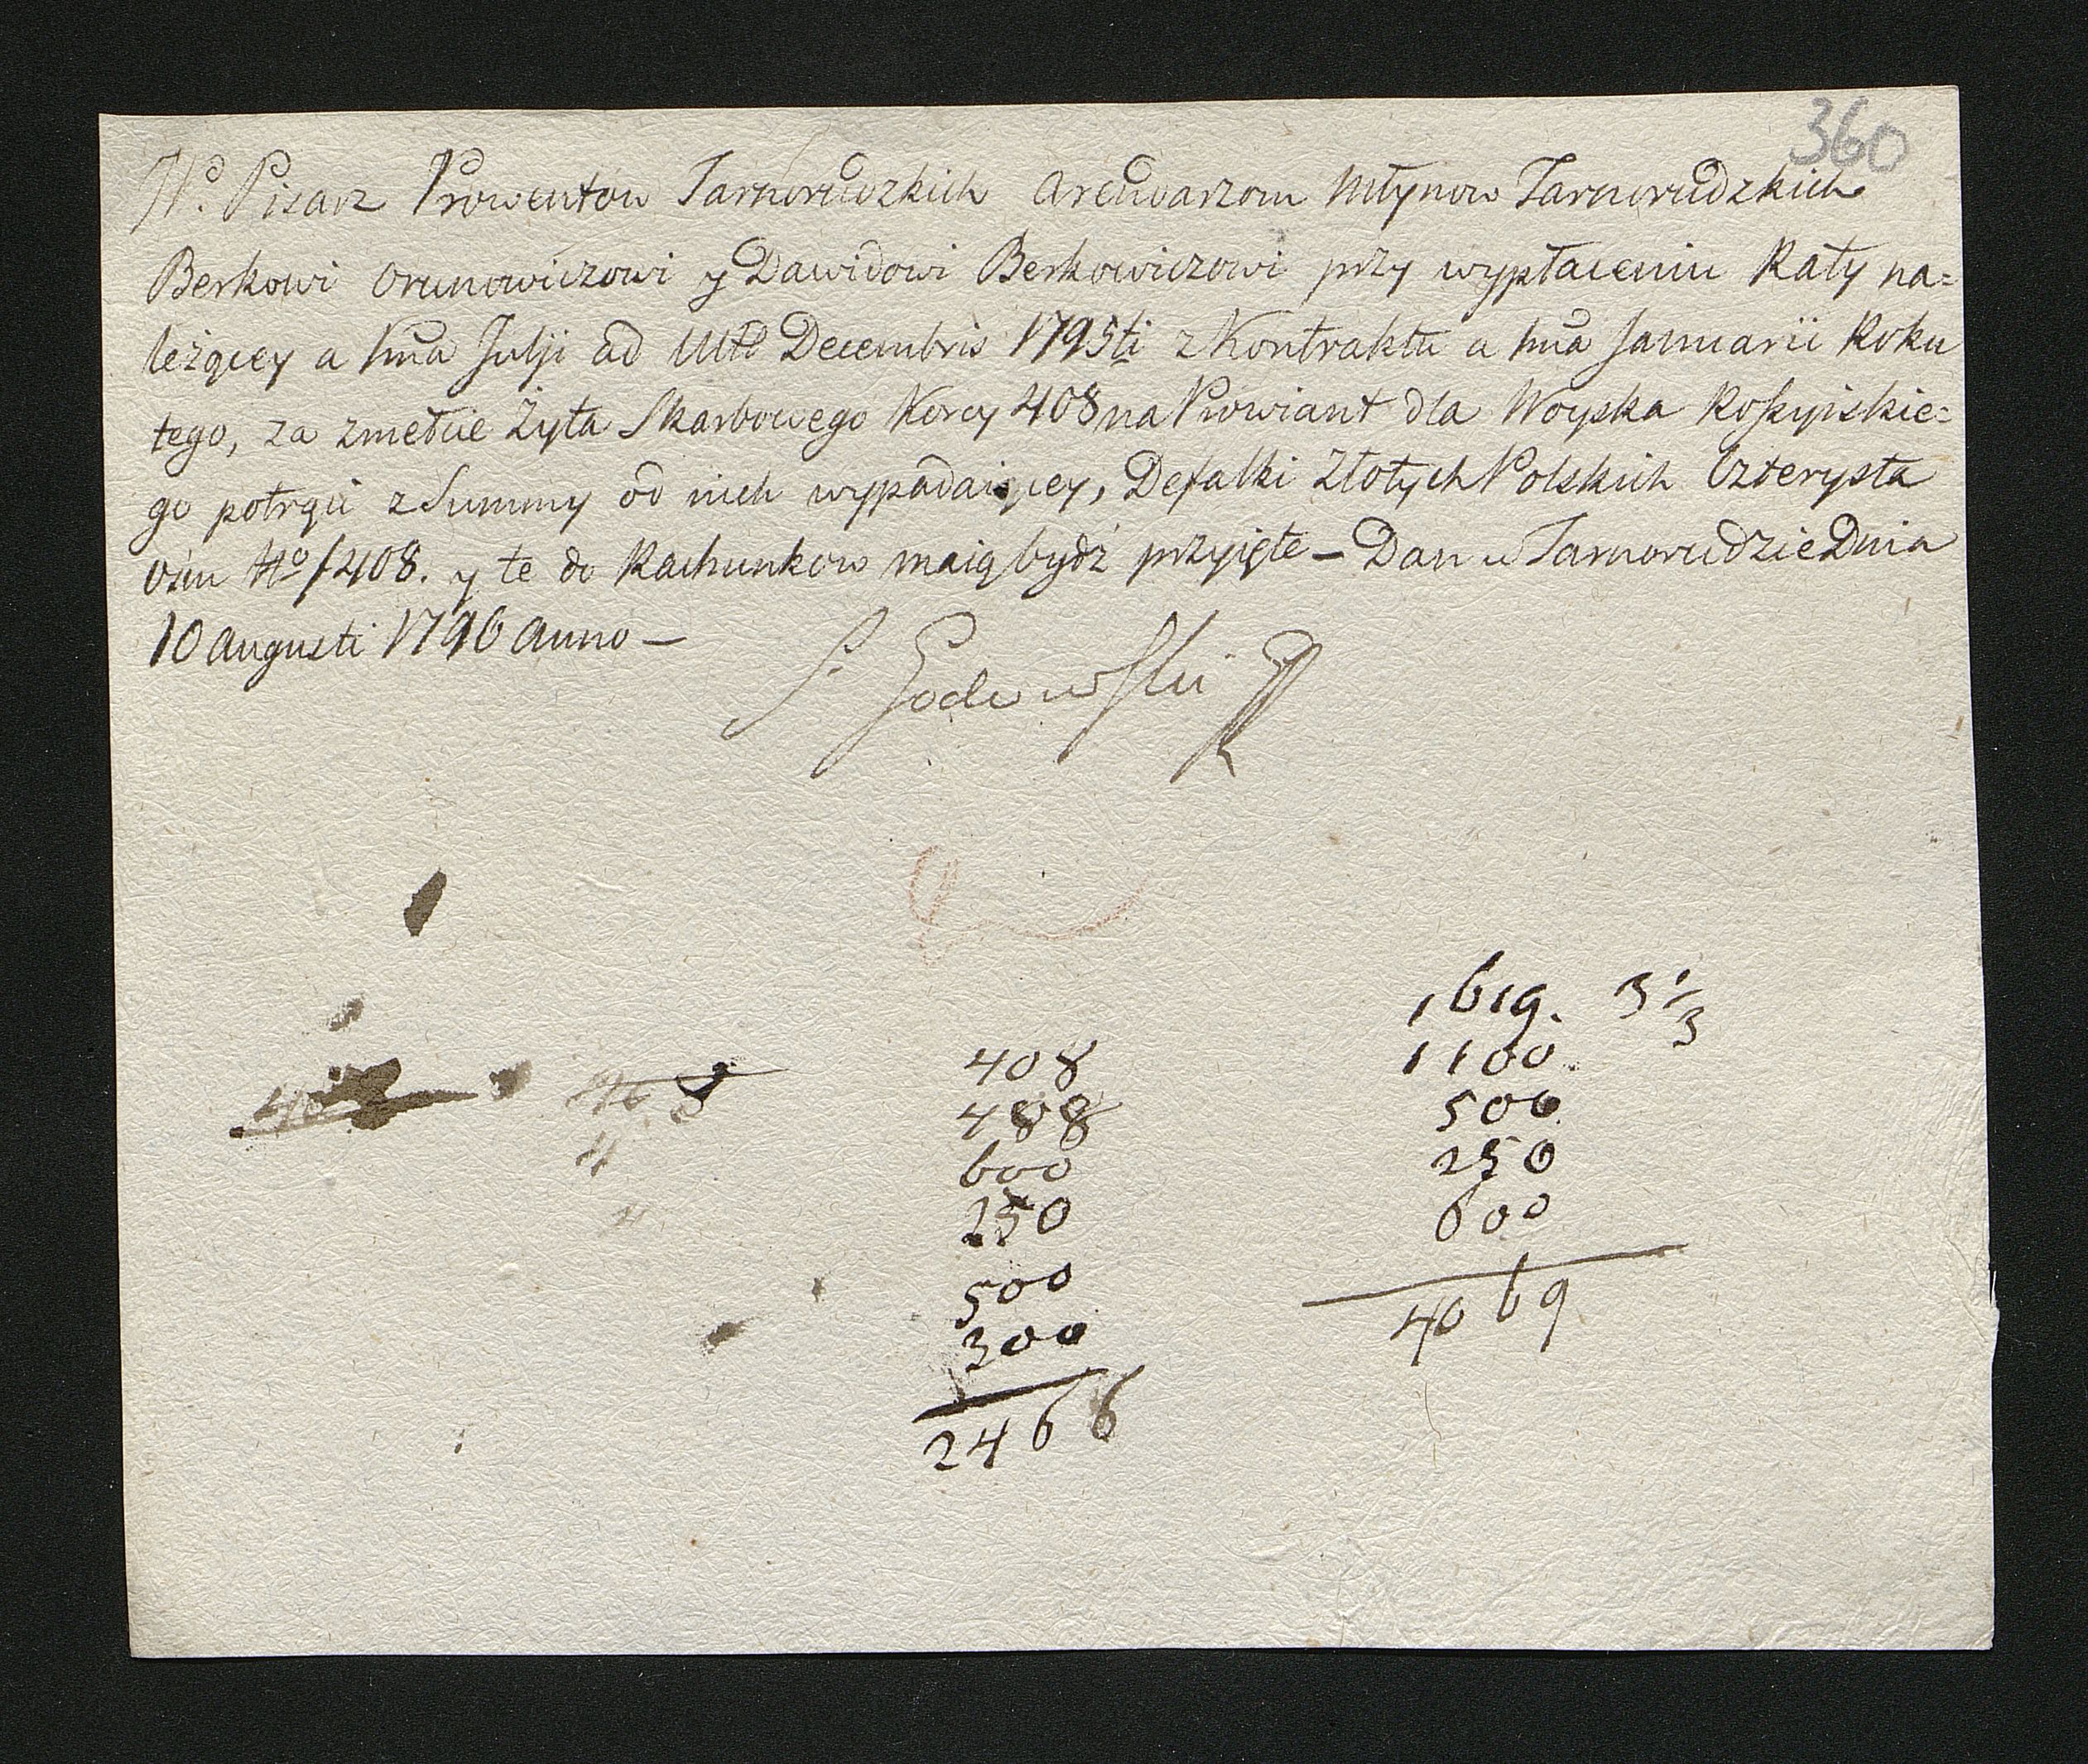 360
WP. Pisarz Prowentow Tarnorudzkich Arendarzom Młynow Tarnorudzkich
Berkowi Orunowiczowi y Dawidowi Berkowiczowi przy wypłaceniu Raty na=
leżącey a 1ma Julji ad Ult Decembris 1795ti z Kontraktu a 1ma Januarii Roku
tego, za zmełcie Żyta Skarbowego Korcy 408 na Prowiant dla Woyska Roſsyiskie=
go potrąci z Summy od nich wypadaiącey, Defalki Złotych Polskich Czterysta
osm No f 408. y te do Rachunkow maią bydź przyięte – Dan w Tarnorudzie Dnia
10 Augusti 1796 Anno –
408
488
600
250
500
300
2466
1619. 3 1/3
1100
500
250
600
4069